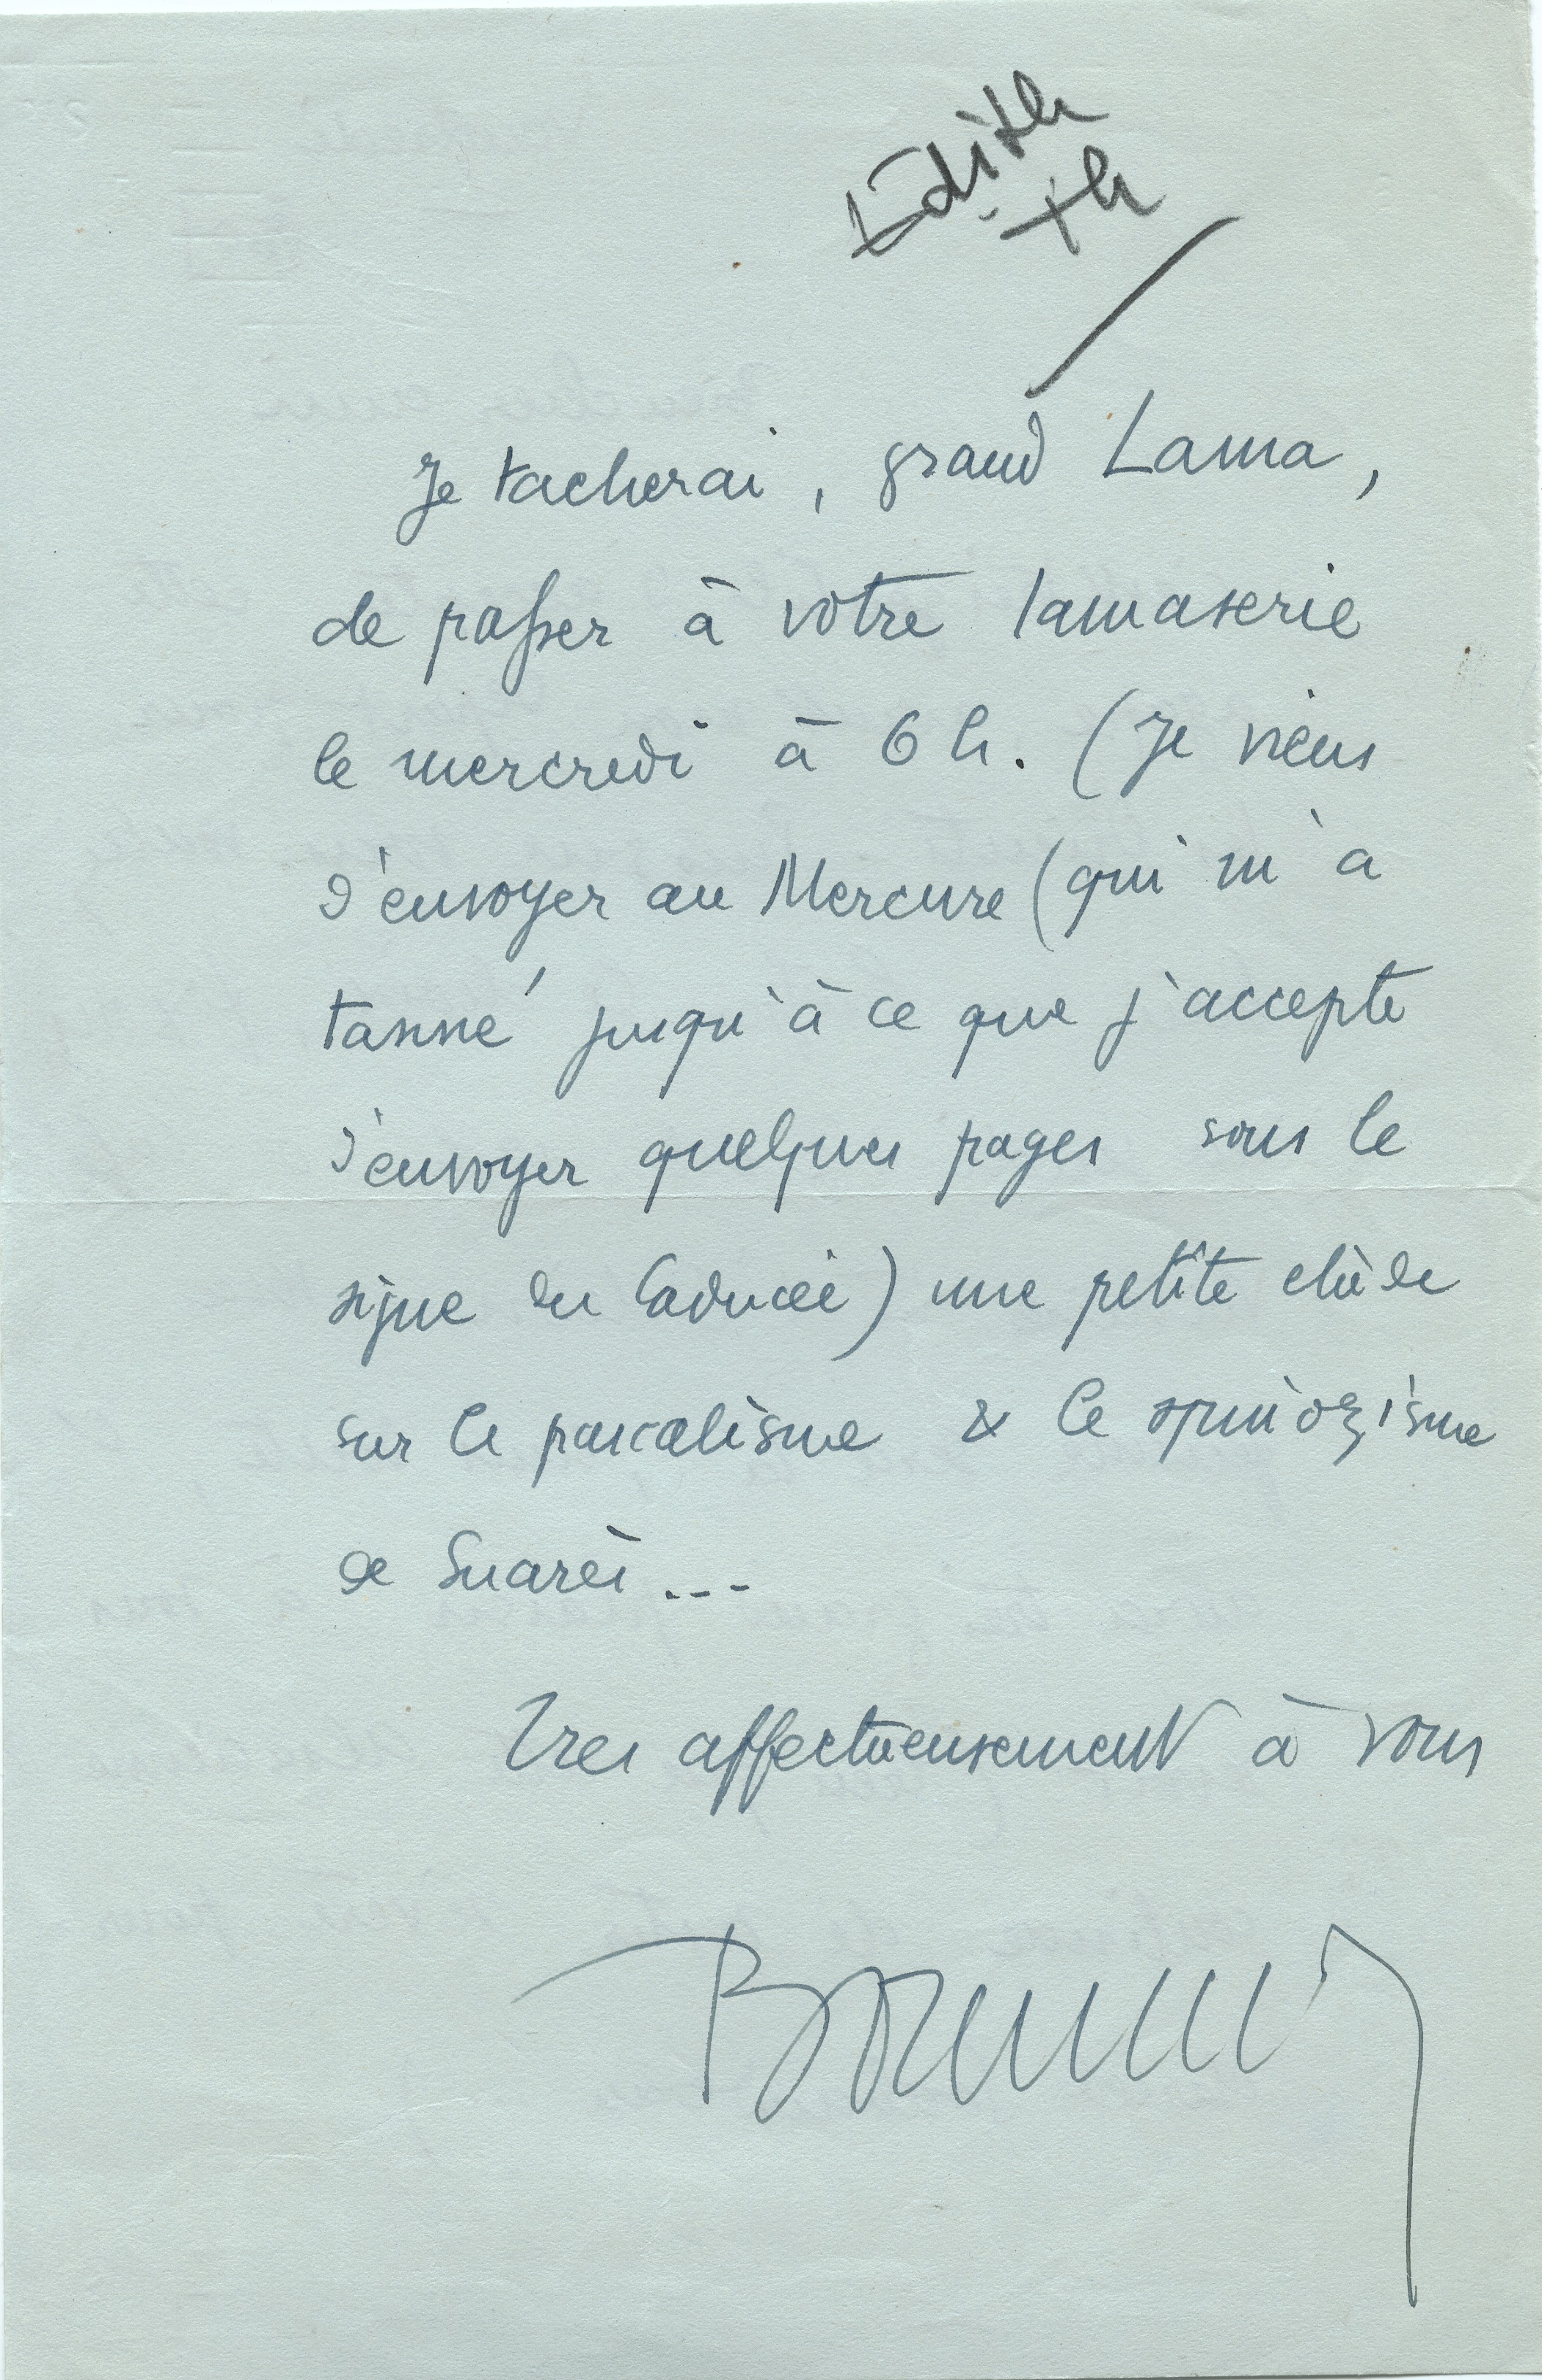 Edith
th
Je tacherai, grand Lama,
de passer à votre lamaserie
le mercredi à 6 h. (Je viens
d'envoyer au Mercure (qui m'a
tanné jusqu'à ce que j'accepte
d'envoyer quelques pages sous le
signe du Caducée) une petite etude
sur le pascalisme & le spinozisme
de Suarès...
Tres affectueusement à vous